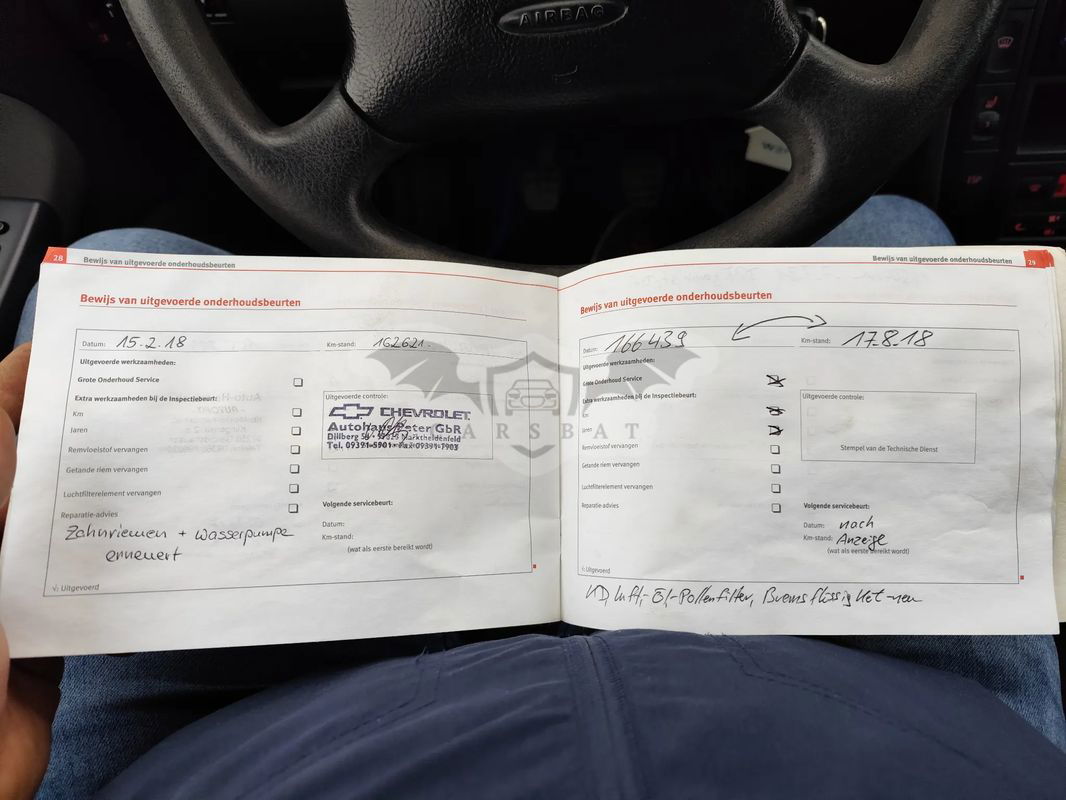 AIRBAG
ESP
28
Bewijs van uitgevoerde onderhoudsbeurten
Bewijs van uitgevoerde onderhoudsbeurten
Datum: 15.2.18
Km-stand: 162621.
Uitgevoerde werkzaamheden:
Grote Onderhoud Service
Extra werkzaamheden bij de Inspectiebeurt:
Km
Jaren
Remvloeistof vervangen
Getande riem vervangen
Luchtfilterelement vervangen
Reparatie-advies
Zahnriemen + Wasserpumpe
erneuert
Uitgevoerde controle:
CHEVROLET
Autohaus Peter GbR
Dillberg Marktheidenfeld
Tel. 09391-5901 · Fax 09391-7903
Volgende servicebeurt:
Datum:
Km-stand:
(wat als eerste bereikt wordt)
√: Uitgevoerd
Bewijs van uitgevoerde onderhoudsbeurten
29
Bewijs van uitgevoerde onderhoudsbeurten
Datum: 166439
Km-stand: 17.8.18
Uitgevoerde werkzaamheden:
Grote Onderhoud Service
Extra werkzaamheden bij de Inspectiebeurt:
Km
Jaren
Remvloeistof vervangen
Getande riem vervangen
Luchtfilterelement vervangen
Reparatie-advies
Uitgevoerde controle:
Stempel van de Technische Dienst
Volgende servicebeurt:
Datum: nach
Km-stand: Anzeige
(wat als eerste bereikt wordt)
√: Uitgevoerd
KD, Luft-, Öl-Pollenfilter, Bremsflüssigkeit neu
CARSBAT